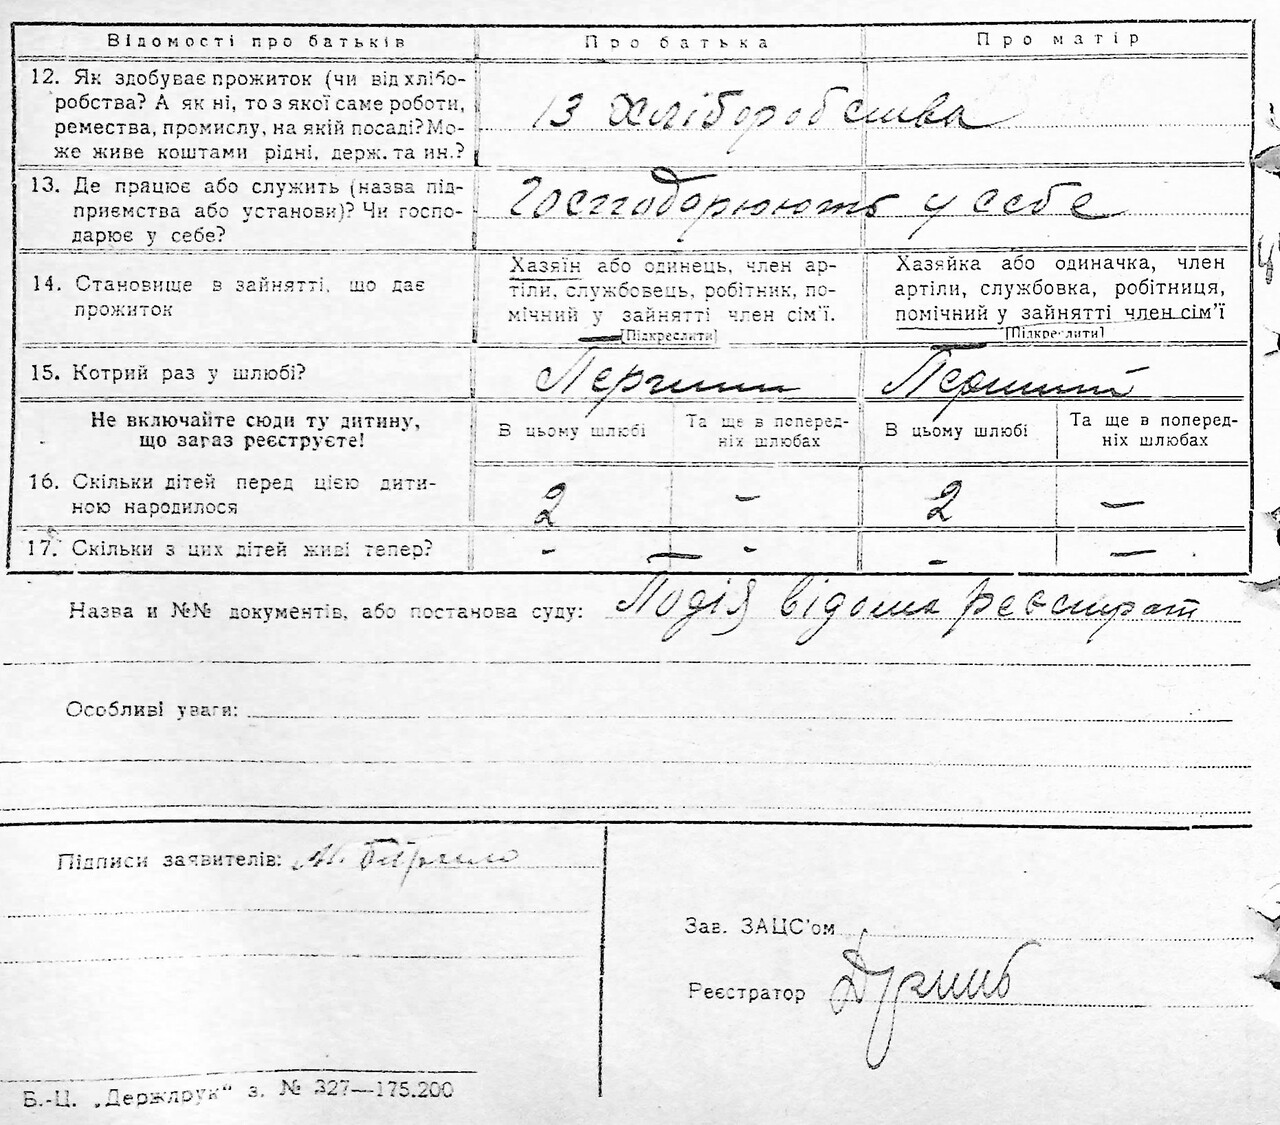 Відомості про батьків Про батька Про матір
12. Як здобуває прожиток (чи від хлібо-
робства? А як ні, то з якої саме роботи,
ремества, промислу, на якій посаді? Мо-
же живе коштами рідні, держ. та ин.?
із хліборобства
13. Де працює або служить (назва під-
приємства або установи)? Чи госпо-
дарює у себе?
Господорюють у себе
14. Становище в зайнятті, що дає
прожиток
Хазяїн або одинець, член ар-
тіли, службовець, робітник, по-
мічний у зайнятті член сім'ї.
[Підкреслити]
Хазяйка або одиначка, член
артіли, службовка, робітниця,
помічний у зайнятті член сім'ї
[Підкреслити]
15. Котрий раз у шлюбі? Перший Перший
Не включайте сюди ту дитину,
що загаз реєструєте!
В цьому шлюбі
Та ще в поперед-
ніх шлюбах
В цьому шлюбі
Та ще в поперед-
ніх шлюбах
16. Скільки дітей перед цією дити-
ною народилося
2 - 2 —
17. Скільки з цих дітей живі тепер? - - - —
Назва и №№ документів, або постанова суду: Подія відома реєстрат
Особливі уваги:
Підписи заявителів:
Зав. ЗАЦС'ом
Реєстратор
Б.-Ц. „Держдрук" з. № 327—175.200